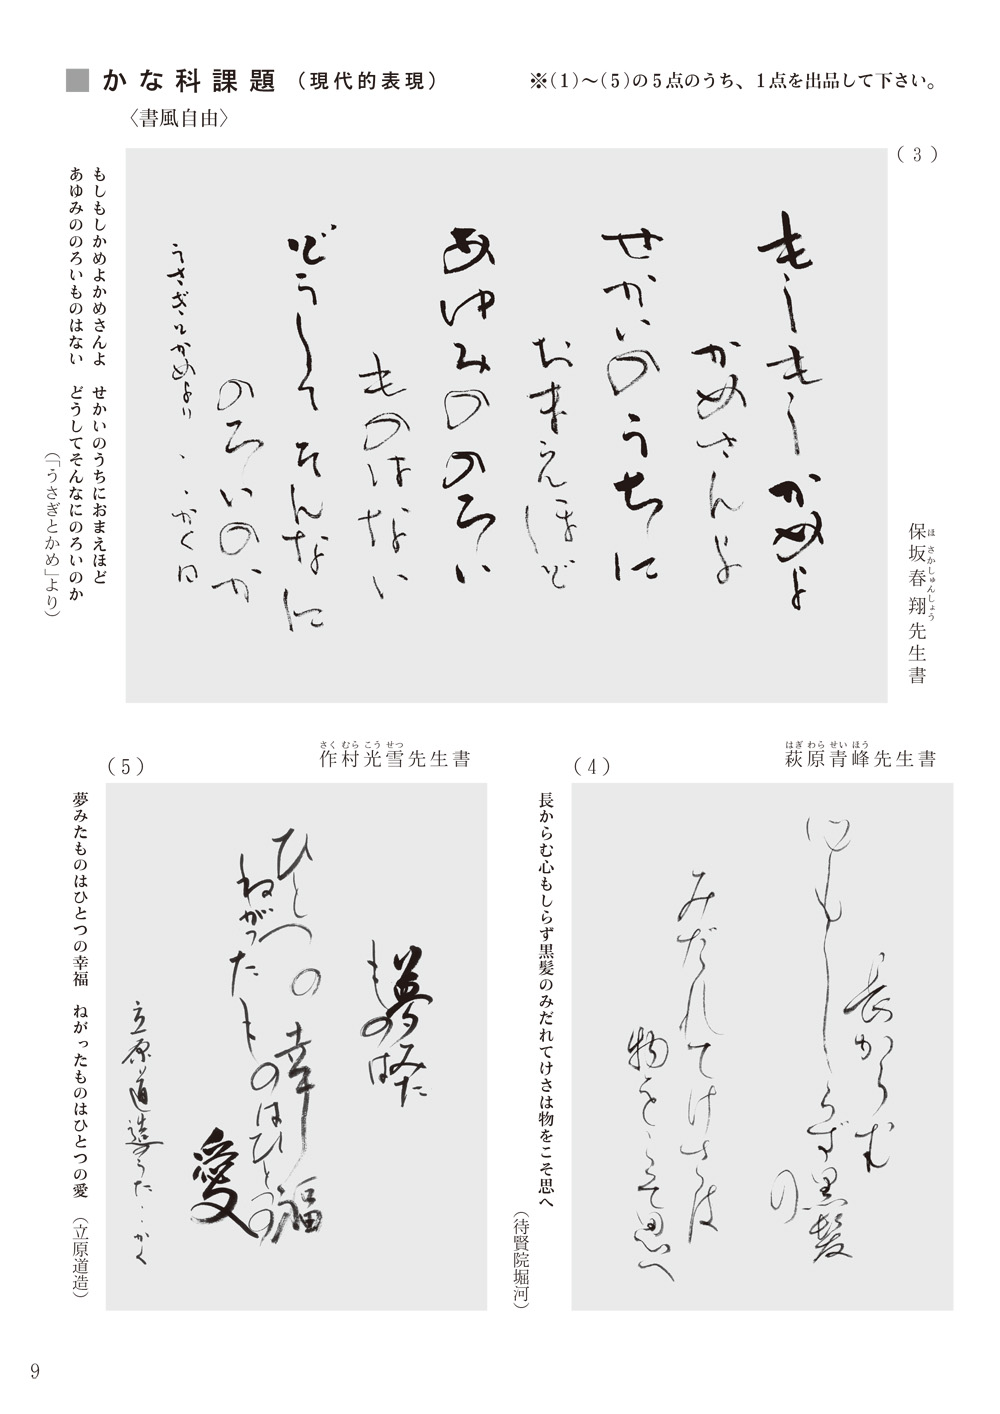 ■かな科課題（現代的表現）
※（1）〜（5）の5点のうち、1点を出品して下さい。
〈書風自由〉
（3）
保坂春翔先生書
ほさかしゅんしょう
もしもしかめよ
かめさんよ
せかいのうちに
おまえほど
あゆみののろい
ものはない
どうしてそんなに
のろいのか
うさぎとかめより・・かく
もしもしかめよかめさんよ　せかいのうちにおまえほど
あゆみののろいものはない　どうしてそんなにのろいのか
（「うさぎとかめ」より）
（4）
萩原青峰先生書
はぎわらせいほう
長からむ
心もしらず黒髪
の
みだれてけさは
物をこそ思へ
長からむ心もしらず黒髪のみだれてけさは物をこそ思へ
（待賢院堀河）
（5）
作村光雪先生書
さくむらこうせつ
夢みた
ものは
ひとつの幸福
ねがった
ものはひとつの
愛
立原道造のうた・・かく
夢みたものはひとつの幸福　ねがったものはひとつの愛　（立原道造）
9